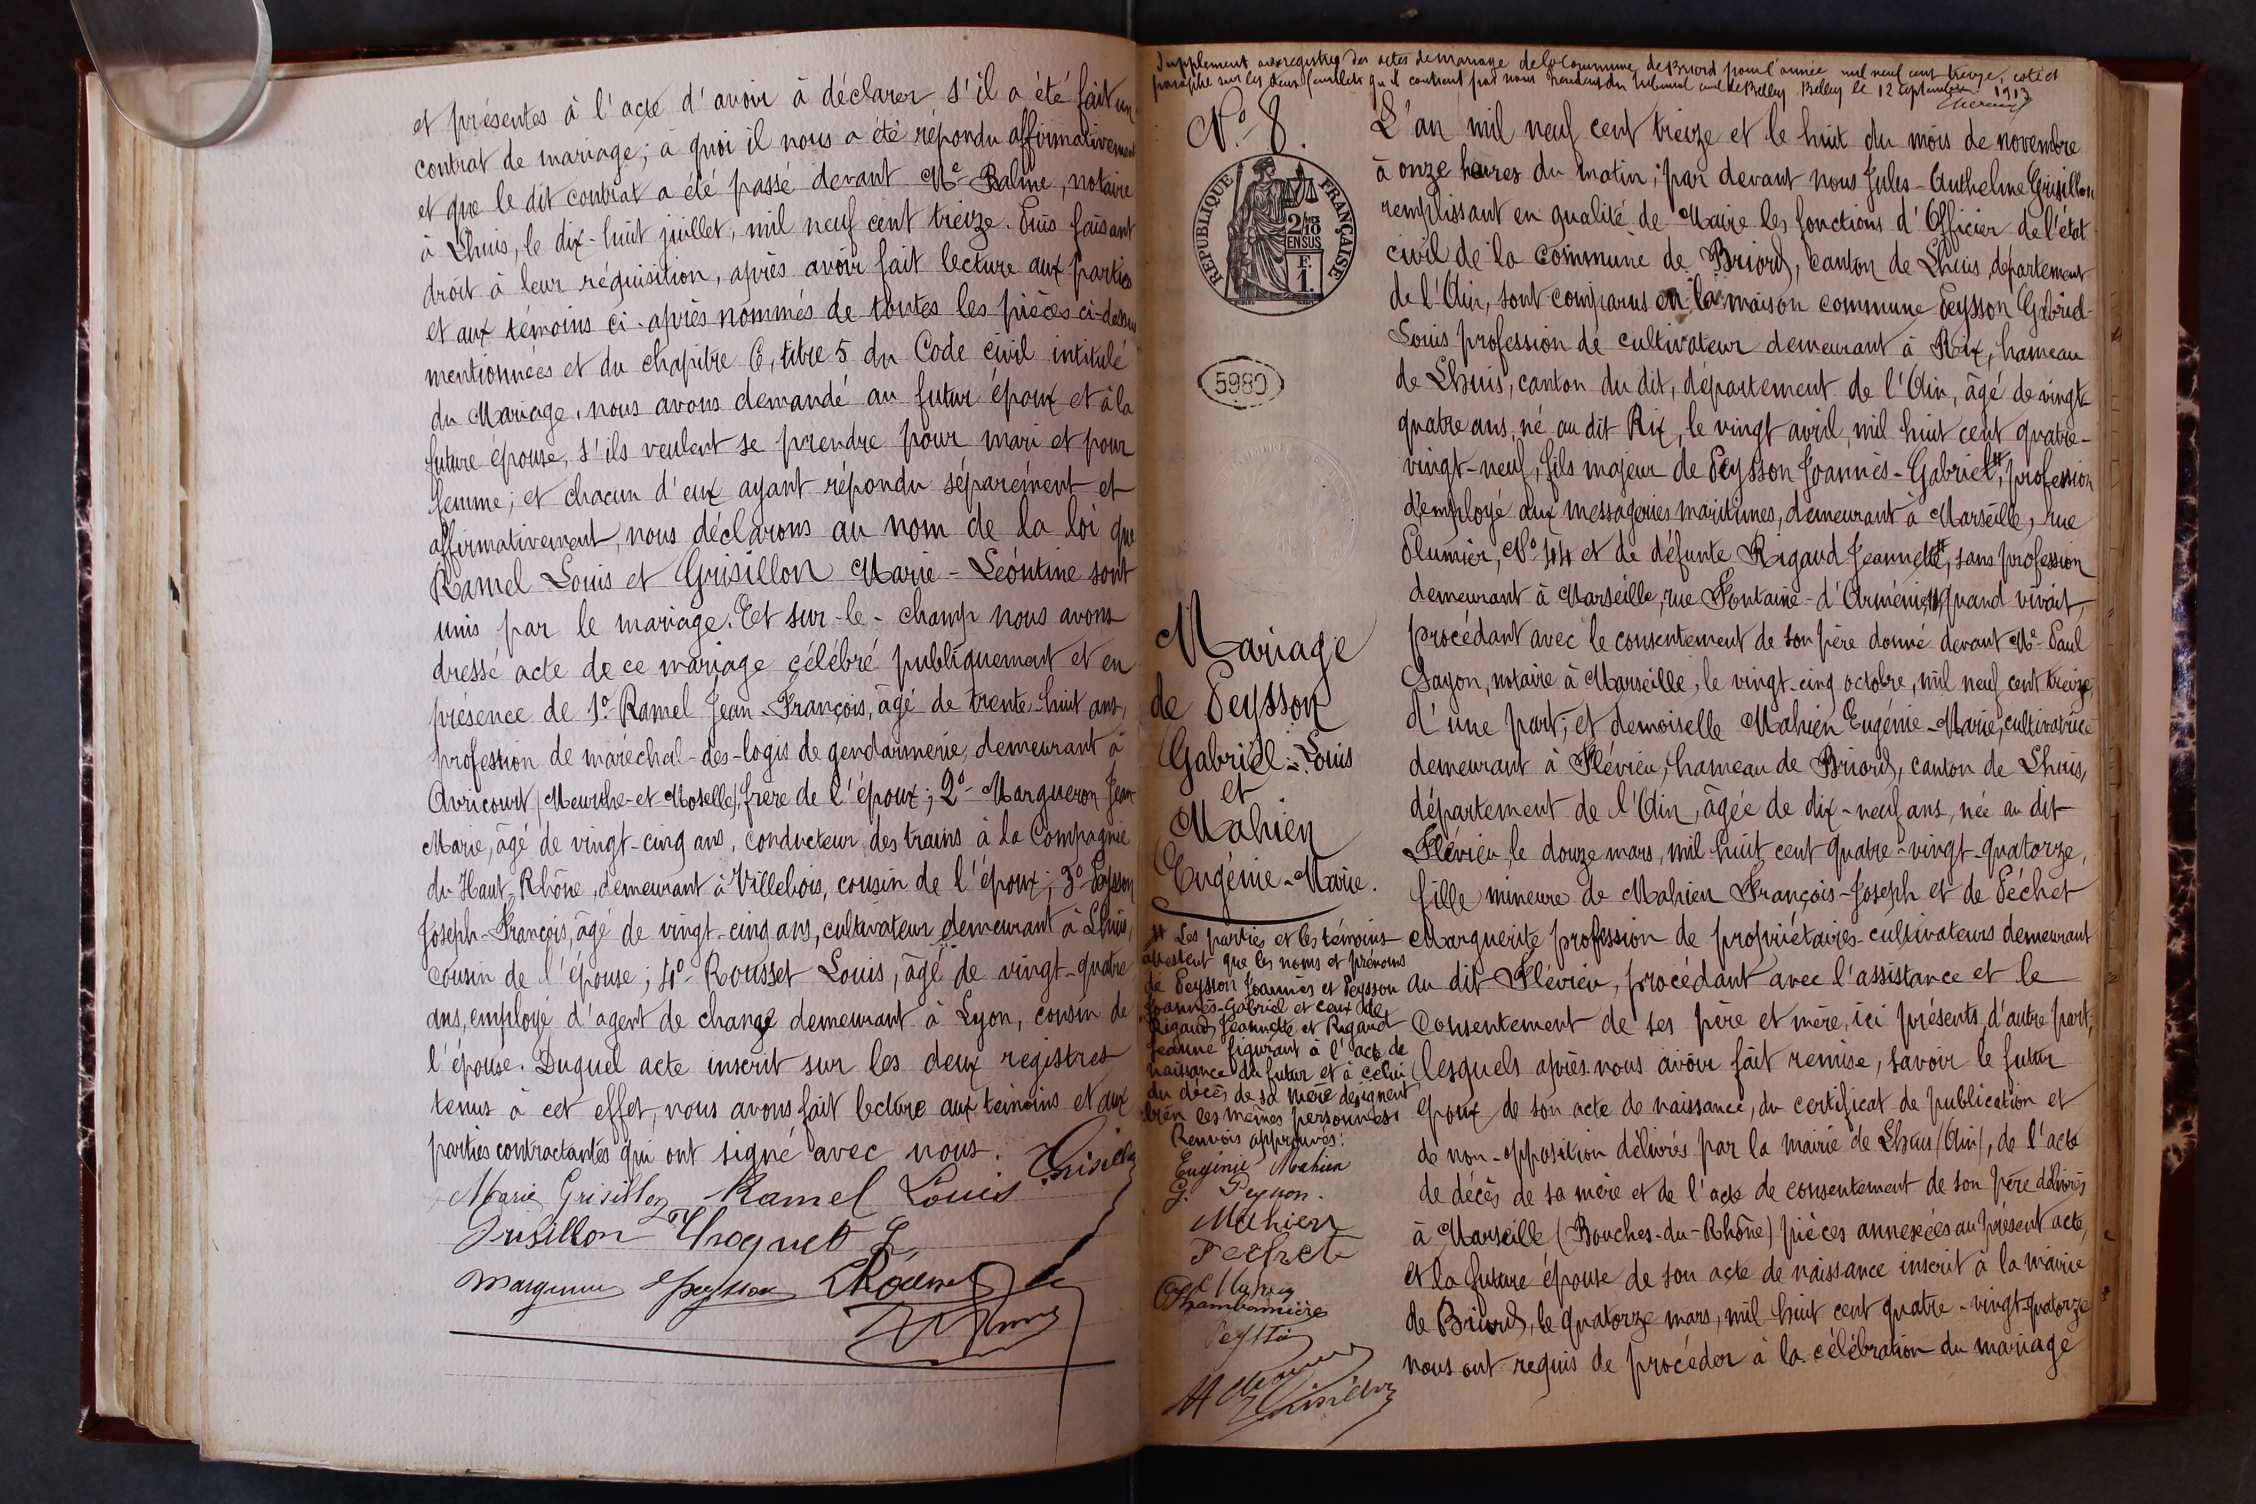 et présentes à l'acte d'avoir à déclarer s'il a été fait un
contrat de mariage; à quoi il nous a été répondu affirmativement
et que le dit contrat a été passé devant Me Balme, notaire
à Lhuis, le dix-huit juillet, mil neuf cent treize. Puis faisant
droit à leur réquisition, après avoir fait lecture aux parties
et aux témoins ci-après nommés de toutes les pièces ci-dessus
mentionnées et du chapitre 6, titre 5 du Code civil intitulé
du Mariage, nous avons demandé au futur époux et à la
future épouse, s'ils veulent se prendre pour mari et pour
femme; et chacun d'eux ayant répondu séparément et
affirmativement, nous déclarons au nom de la loi que
Ramel Louis et Grisillon Marie-Léontine sont
unis par le mariage. Et sur-le-champ nous avons
dressé acte de ce mariage célébré publiquement et en
présence de 1º. Ramel Jean-François, âgé de trente-huit ans,
profession de maréchal-des-logis de gendarmerie, demeurant à
Avricourt (Meurthe-et-Moselle), frère de l'époux; 2º- Margueron Jean
Marie, âgé de vingt-cinq ans, conducteur des trains à la Compagnie
du Haut-Rhône, demeurant à Villebois, cousin de l'époux; 3º- Peysson
Joseph-François, âgé de vingt-cinq ans, cultivateur demeurant à Lhuis,
cousin de l'épouse; 4º- Rousset Louis, âgé de vingt-quatre
ans, employé d'agent de change demeurant à Lyon, cousin de
l'épouse. Duquel acte inscrit sur les deux registres
tenus à cet effet, nous avons fait lecture aux témoins et aux
parties contractantes qui ont signé avec nous.
Grisillon
Marie Grisillon Ramel Louis
Grisillon
Margueron Peysson
Supplément aux registres des actes de mariage de la Commune de Briord pour l'année mil neuf cent treize, coté et
paraphé sur les deux feuillets qu'il contient par nous Président du Tribunal civil de Belley. Belley le 12 septembre 1913
Nº 8.
RÉPUBLIQUE FRANÇAISE
2/10
EN SUS
F.
1.
5980
Mariage
de Peysson
Gabriel-Louis
et
Mahien
Eugénie-Marie.
# Les parties et les témoins
attestent que les noms et prénoms
de Peysson Joannès et Peysson
Joannès-Gabriel et ceux de
Rigaud Jeannette et Rigaud
Jeanne figurant à l'acte de
naissance du futur et à celui
du décès de sa mère désignent
bien les mêmes personnes.
Renvois approuvés:
Eugénie Mahien
G. Peysson.
Mahien
Pechet
Chambonnière
Peysson
Grisillon
L'an mil neuf cent treize et le huit du mois de novembre
à onze heures du matin; par devant nous Jules-Anthelme Grisillon
remplissant en qualité de Maire les fonctions d'Officier de l'état
civil de la commune de Briord, canton de Lhuis, département
de l'Ain, sont comparus en la maison commune Peysson Gabriel-
Louis profession de cultivateur demeurant à Rix, hameau
de Lhuis, canton du dit, département de l'Ain, âgé de vingt-
quatre ans, né au dit Rix, le vingt avril, mil huit cent quatre-
vingt-neuf, fils majeur de Peysson Joannès-Gabriel#, profession
d'employé aux messageries maritimes, demeurant à Marseille, rue
Plumier, Nº 44 et de défunte Rigaud Jeannette#, sans profession
demeurant à Marseille, rue Fontaine-d'Arménie, quand vivait,
procédant avec le consentement de son père donné devant Me Paul
Sayon, notaire à Marseille, le vingt-cinq octobre, mil neuf cent treize,
d'une part; et demoiselle Mahien Eugénie-Marie, cultivatrice
demeurant à Flévieu, hameau de Briord, canton de Lhuis,
département de l'Ain, âgée de dix-neuf ans, née au dit
Flévieu, le douze mars, mil huit cent quatre-vingt-quatorze,
fille mineure de Mahien François-Joseph et de Péchet
Marguerite profession de propriétaires-cultivateurs demeurant
au dit Flévieu, procédant avec l'assistance et le
consentement de ses père et mère, ici présents, d'autre part;
lesquels après nous avoir fait remise, savoir le futur
époux de son acte de naissance, du certificat de publication et
de non-opposition délivrés par la mairie de Lhuis (Ain), de l'acte
de décès de sa mère et de l'acte de consentement de son père délivrés
à Marseille (Bouches-du-Rhône) pièces annexées au présent acte,
et la future épouse de son acte de naissance inscrit à la mairie
de Briord, le quatorze mars, mil huit cent quatre-vingt-quatorze
nous ont requis de procéder à la célébration du mariage